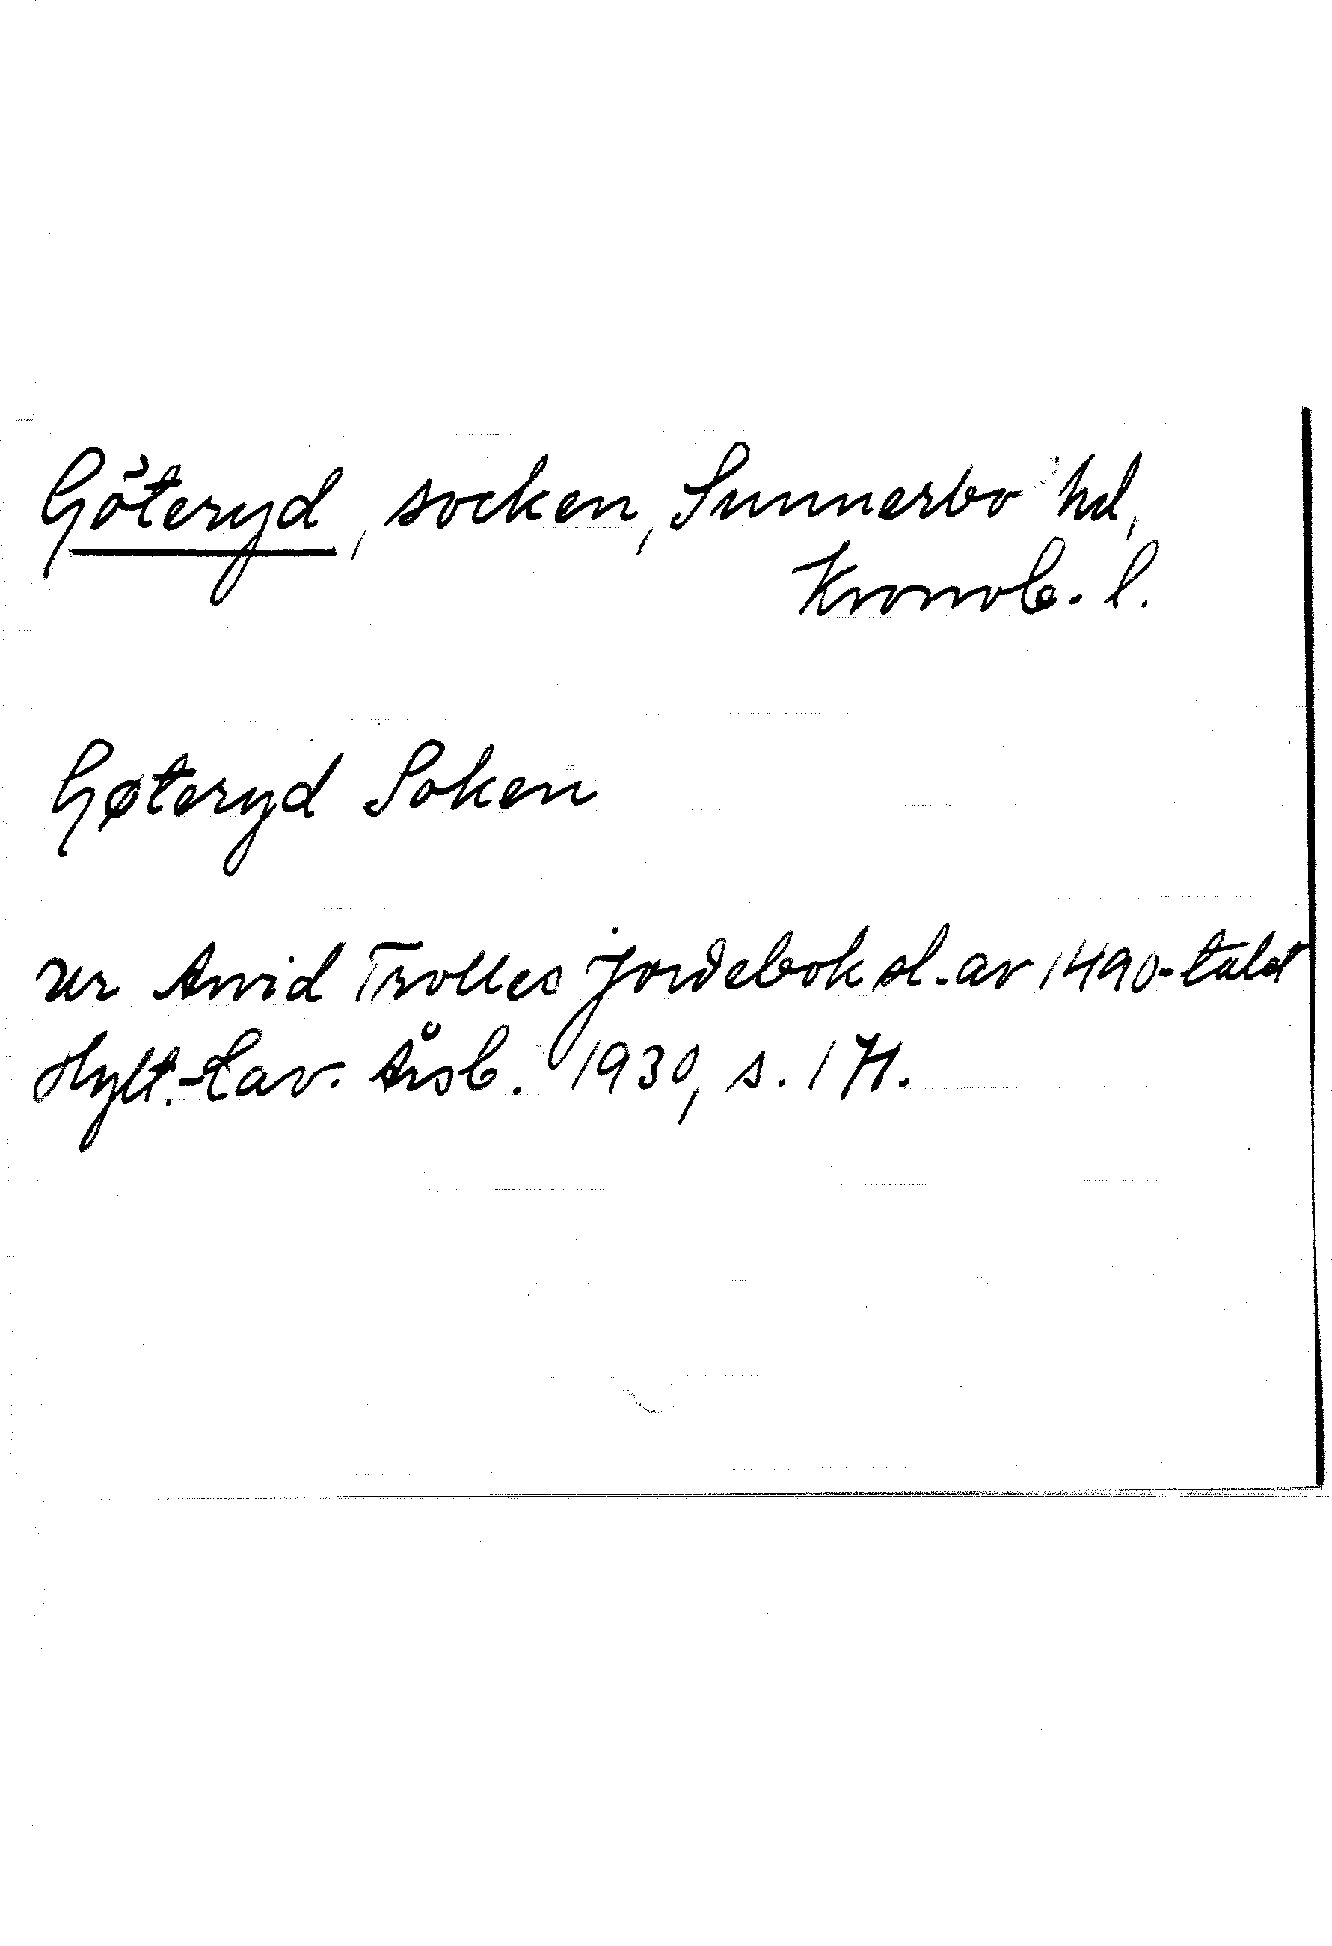 Göteryd, socken, Sunnerbo hd,
Kronob. l.
Gøteryd Soken
ur Arvid Trolles Jordebok sl. av 1490-talet
Hylt.-Cav. Årsb. 1930, s. 171.